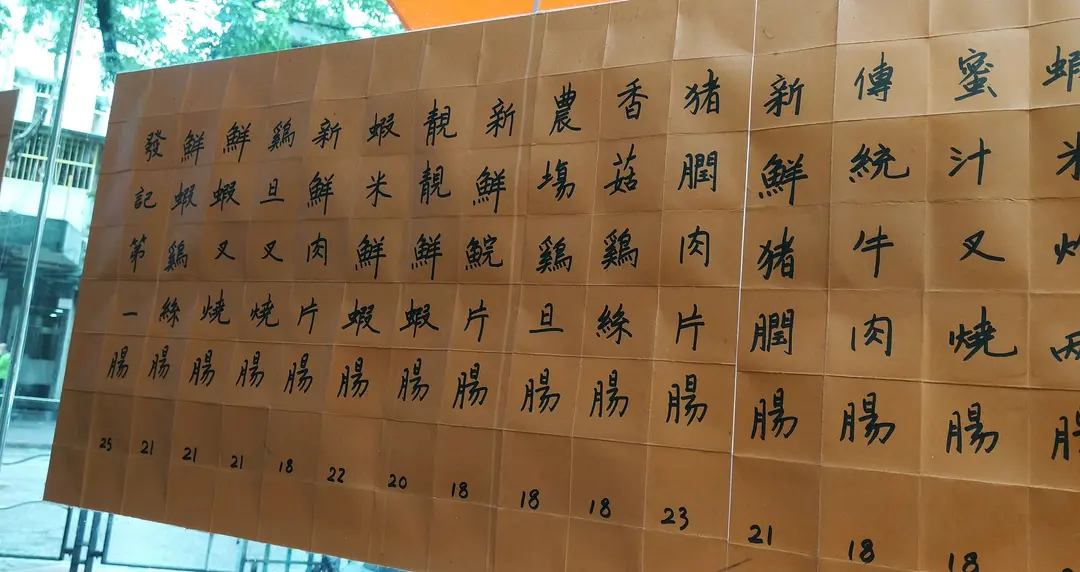 發記第一腸 25
鮮蝦鷄絲腸 21
鮮蝦叉燒腸 21
鷄旦叉燒腸 21
新鮮肉片腸 18
蝦米鮮蝦腸 22
靚靚鮮蝦腸 20
新鮮鯇片腸 18
農塲鷄旦腸 18
香菇鷄絲腸 18
猪膶肉片腸 23
新鮮猪膶腸 21
傳統牛肉腸 18
蜜汁叉燒腸 18
蝦米